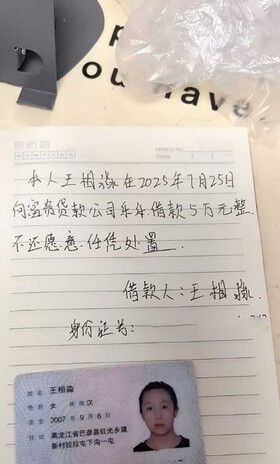 ou have
Memo No.
Date / /
本人王相淼在2025年7月25日
向富贵贷款公司年年借款5万元整
不还愿意任凭处置
借款人:王相淼
身份证号:
姓名 王相淼
性别 女 民族 汉
出生 2007年9月6日
住址 黑龙江省巴彦县红光乡建
新村拉拉屯下沟一屯